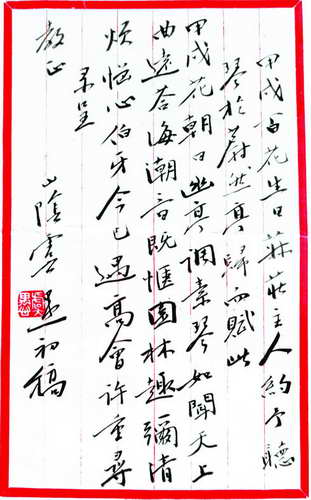 甲戌百花生日莊主人約予聽
琴於蔚然真歸而賦此
甲戌花朝日幽真調素琴如聞天上
曲遠答海潮音既愜園林趣彌清
煩惱心伯牙今已遇高會許重尋
录呈
教正
山陰初稿